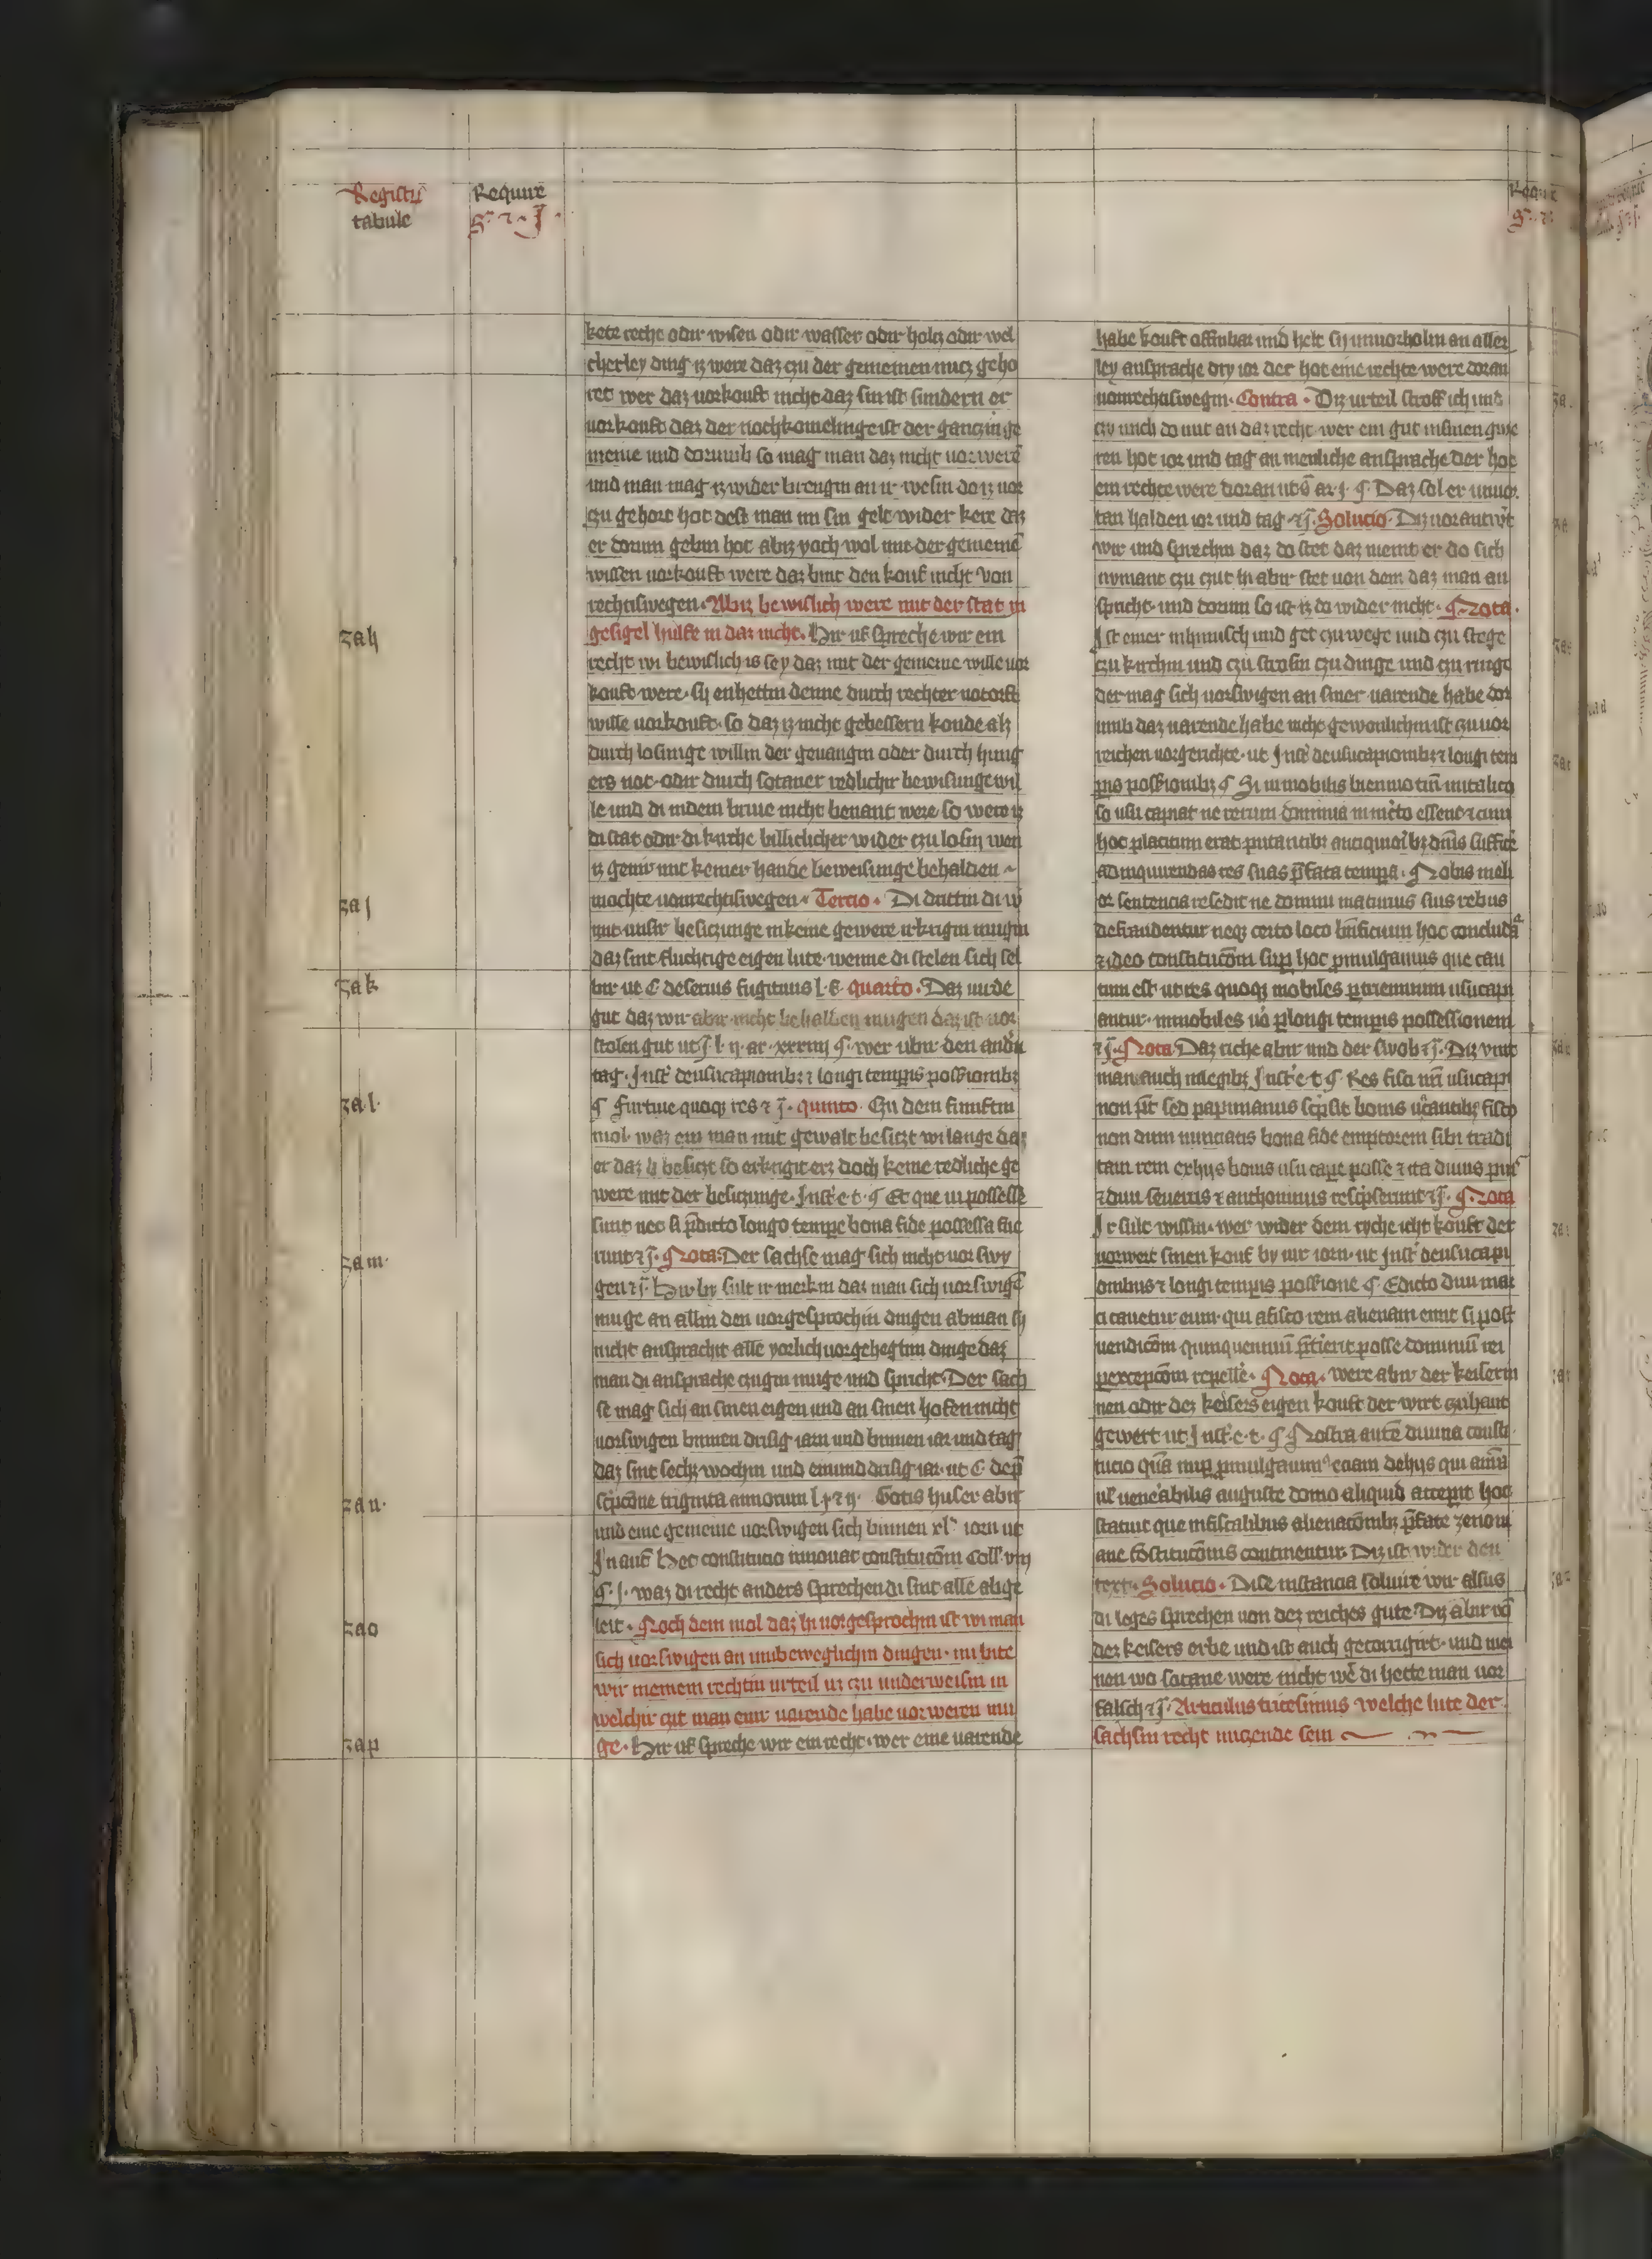 Registrum
tabule
Require
kete teche odir wisen odir wasser odir holtz odir wel
cherley ding iz were daz czu der gemeinen nutz geho
ret wer daz vorkouft nicht daz sin ist sundern er
vorkouft daz der nochkomelinge ist der gantzin ge
meine und dorumb so mag man daz nicht vorwerē
und man mag iz wider brengin an ir wesin do iz vor
czu gehort hot dest man im sin gelt wider kere daz
er dorum gebin hot abiz ioch wol mit der gemeinē
wissen vorkouft were daz bint den kouf nicht von
rechtiswegen. Abiz bewislich were mit der stat in
zah
gesigel hulfe in daz nicht. Hir uf spreche wir ein
recht wi bewislich is sey daz mit der gemeine wille vor
kouft were. sij enhettin denne durch rechter notorft
wille vorkouft. so daz iz nicht gebessern konde als
durch losunge willin der gevangin oder durch hung
ers not. odir durch sotaner redlichir bewisunge wil
le und di in dem brive nicht benant were so were iz
di stat odir di kirche billiclicher wider czu losin wen
iz genir mit keiner hande beweisunge behalden
zai
mochte von rechtiswegen. Tercio. Di drittin di w
mit unsir besiczunge in keine gewere irkrigin mugin
daz sint fluchtige eigen lute. wenne di stelen sich sel
zak
bir ut C de servis fugitivis l. i. quarto. Daz virde
gut daz wir abir nicht behalden mugen daz ist vor
stolen gut ut J l. ij. ar. xxxvij ¶. wer ubir den andn
tag. Inst' de usucapionibz et longi tempis possionibz
zal.
¶ furtive quoqz res et j. quinto. Czu dem funftin
mol. waz ein man mit gewalt besitzt wi lange daz
er daz h besitzt so erkrigit erz doch keine redliche ge
were mit der besitzunge. Inst' e. t. ¶ Et que vi possesse
sunt nec si p̄dicto longo tempe bona fide possessa fue
zam.
runt et j. Nota. Der sachse mag sich nicht vor swy
gen et j. Hir by sult ir merkin daz man sich vorswigē
muge an allin den vorgesprochin dingen ab man sy
nicht anspracht alle yorlich vor gehegtim dinge daz
man di ansprache czugin muge und spricht. Der sach
se mag sich an sinen eigen und an sinen hofen nicht
vorswigen binnen drisig iarn und binnen iar und tag
daz sint sechz wochin und ein und drisig iar. ut C de p̄
zan.
scripcōne triginta annorum l. i et ij. Gotis huser abir
und eine gemeine vorswigen sich binnen xl iorn ut
In aut̄ Hec constitucio innovat constitucōm Coll' viij
¶. j. waz di recht anders sprechen di sint alle abge
zao
leit. Noch dem mol daz hi vorgesprochin ist wi man
sich vorswigen an umbeweglichin dingen. nu bite
wir in einem rechtin urteil uz czu underweisin in
welchir czit man eine varende habe vorweren mu
zap
ge. Hir uf spreche wir ein recht. wer eine varende
habe kouft offinbar und helt sij unvorholin an aller
ley ansprache dry ior der hot eine rechte were doran
von rechtiswegin. Contra. Diz urteil stroff ich und
czy mich do mit an daz recht wer ein gut in sinen gwe
ren hot ior und tag an menliche ansprache der hot
ein rechte were doran ut s̄ ar. j. ¶. Daz sol er unvor.
tan halden ior und tag et j. Solucio. Diz vorantwrt
wir und sprechin daz do stet daz nemt er do sich
nymant czu czut in abir stet von dem daz man an
spricht. und dorum so ist iz do wider nicht. Nota.
Ist einer inheimisch und get czu wege und czu stege
czu kirchin und czu strosin czu dinge und czu ringe
der mag sich vorswigen an siner varende habe dor
umb daz varende habe nicht gewonlichin ist czu vor
reichen vor gerichte. ut Inst' de usucapionibz et longi tem
pis possionibz ¶ Si immobilis biennio tm̄ in italico
so usu capiat ne rerum dominia in incerto essent et cum
hoc placitum erat putantibz antiquioribz dnis suffice
ad inquirendas res suas p̄fata tempa. Nobis meli
or sentencia resedit ne domini maturius suis rebus
defraudentur neqz certo loco bn̄ficium hoc concludat
et ideo constitucōm sup hoc pmulgavimus que cau
tum est ut res quoqz mobiles p triennium usucapi
antur. immobiles vo p longi tempis possessionem
et j. Nota. Daz riche abir und der swob et j. Diz vint
man auch in legibz Inst' e. t. ¶ Res fisci nri usucapi
non pt̄. sed papinianus scripsit bonis vacantibz fisco
non dum nunciatis bona fide emptorem sibi tradi
tam rem ex hijs bonis usu cape posse et ita divus pius
et divi severus et anthoninus rescripserunt et j. Nota
Ir sult wissin. wer wider dem ryche icht kouft der
vorwert sinen kouf by vir iorn. ut Inst' de usucapi
onibus et longi tempis possione ¶ Edicto divi mar
ci cavetur eum qui a fisco rem alienam emit si post
vendicōm quinquennium p̄terierit posse dominum rei
p excepcōm repelle. Nota. were abir der keiserin
nen odir dez keisers eigen kouft der wirt czuhant
gewert ut Inst'. e. t. ¶ Nostra aute divina consti.
tucio quā nup pmulgavim' eciam de hijs qui a nra
ul' venerabilis auguste domo aliquid accepint hoc
statuit que in fiscalibus alienacōnibz p̄fate zenoni
ane constitucōnis continentur. Diz ist wider den
text. Solucio. Dise instancia solvire wir alsus
di leges sprechen von dez reiches gute. Diz abir vō
dez keisers erbe und ist auch gecorrigirt. und mei
nen wo sotane were nicht wē di hette man vor
falsch et j. Articulus tricesimus welche lute der
sachsin recht nuczende sein